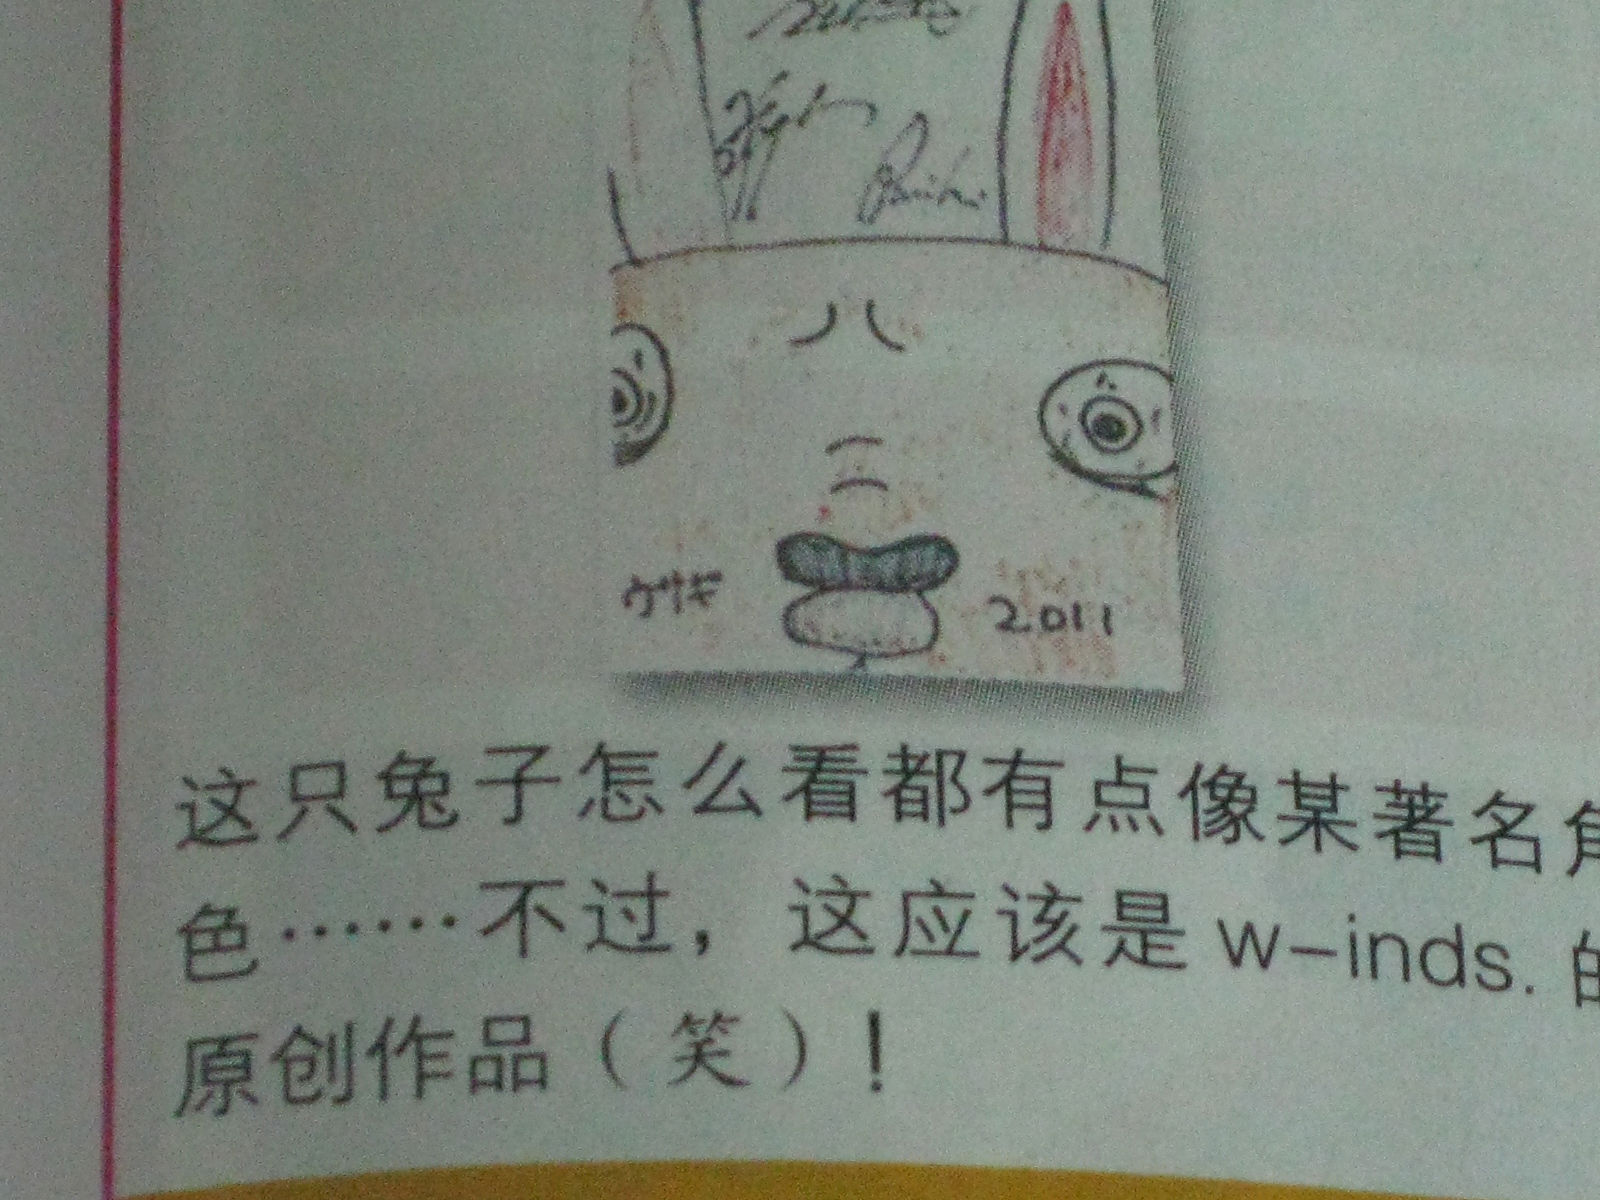 ウサギ
2011
这只兔子怎么看都有点像某著名角
色……不过，这应该是 w-inds. 的
原创作品（笑）！